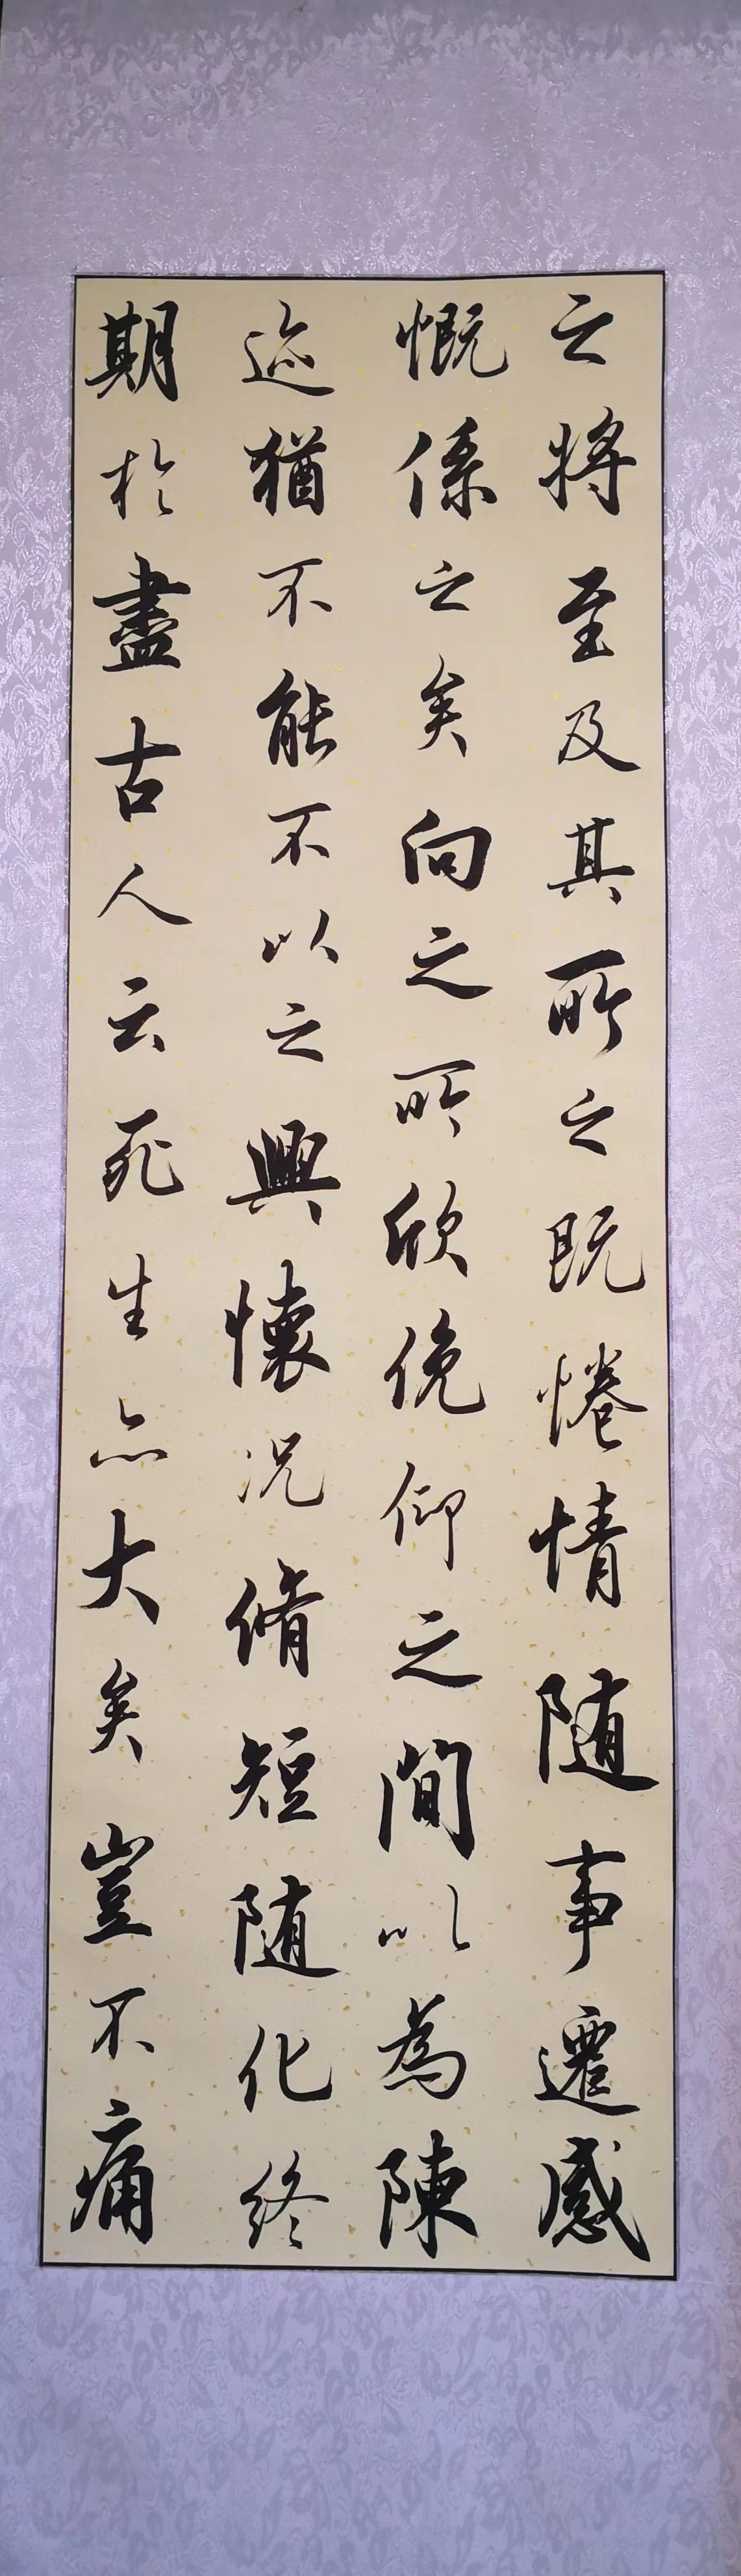 之將至及其所之既惓情随事遷感
慨係之矣向之所欣俛仰之間以為陳
迹猶不能不以之興懷况脩短随化終
期於盡古人云死生亦大矣豈不痛